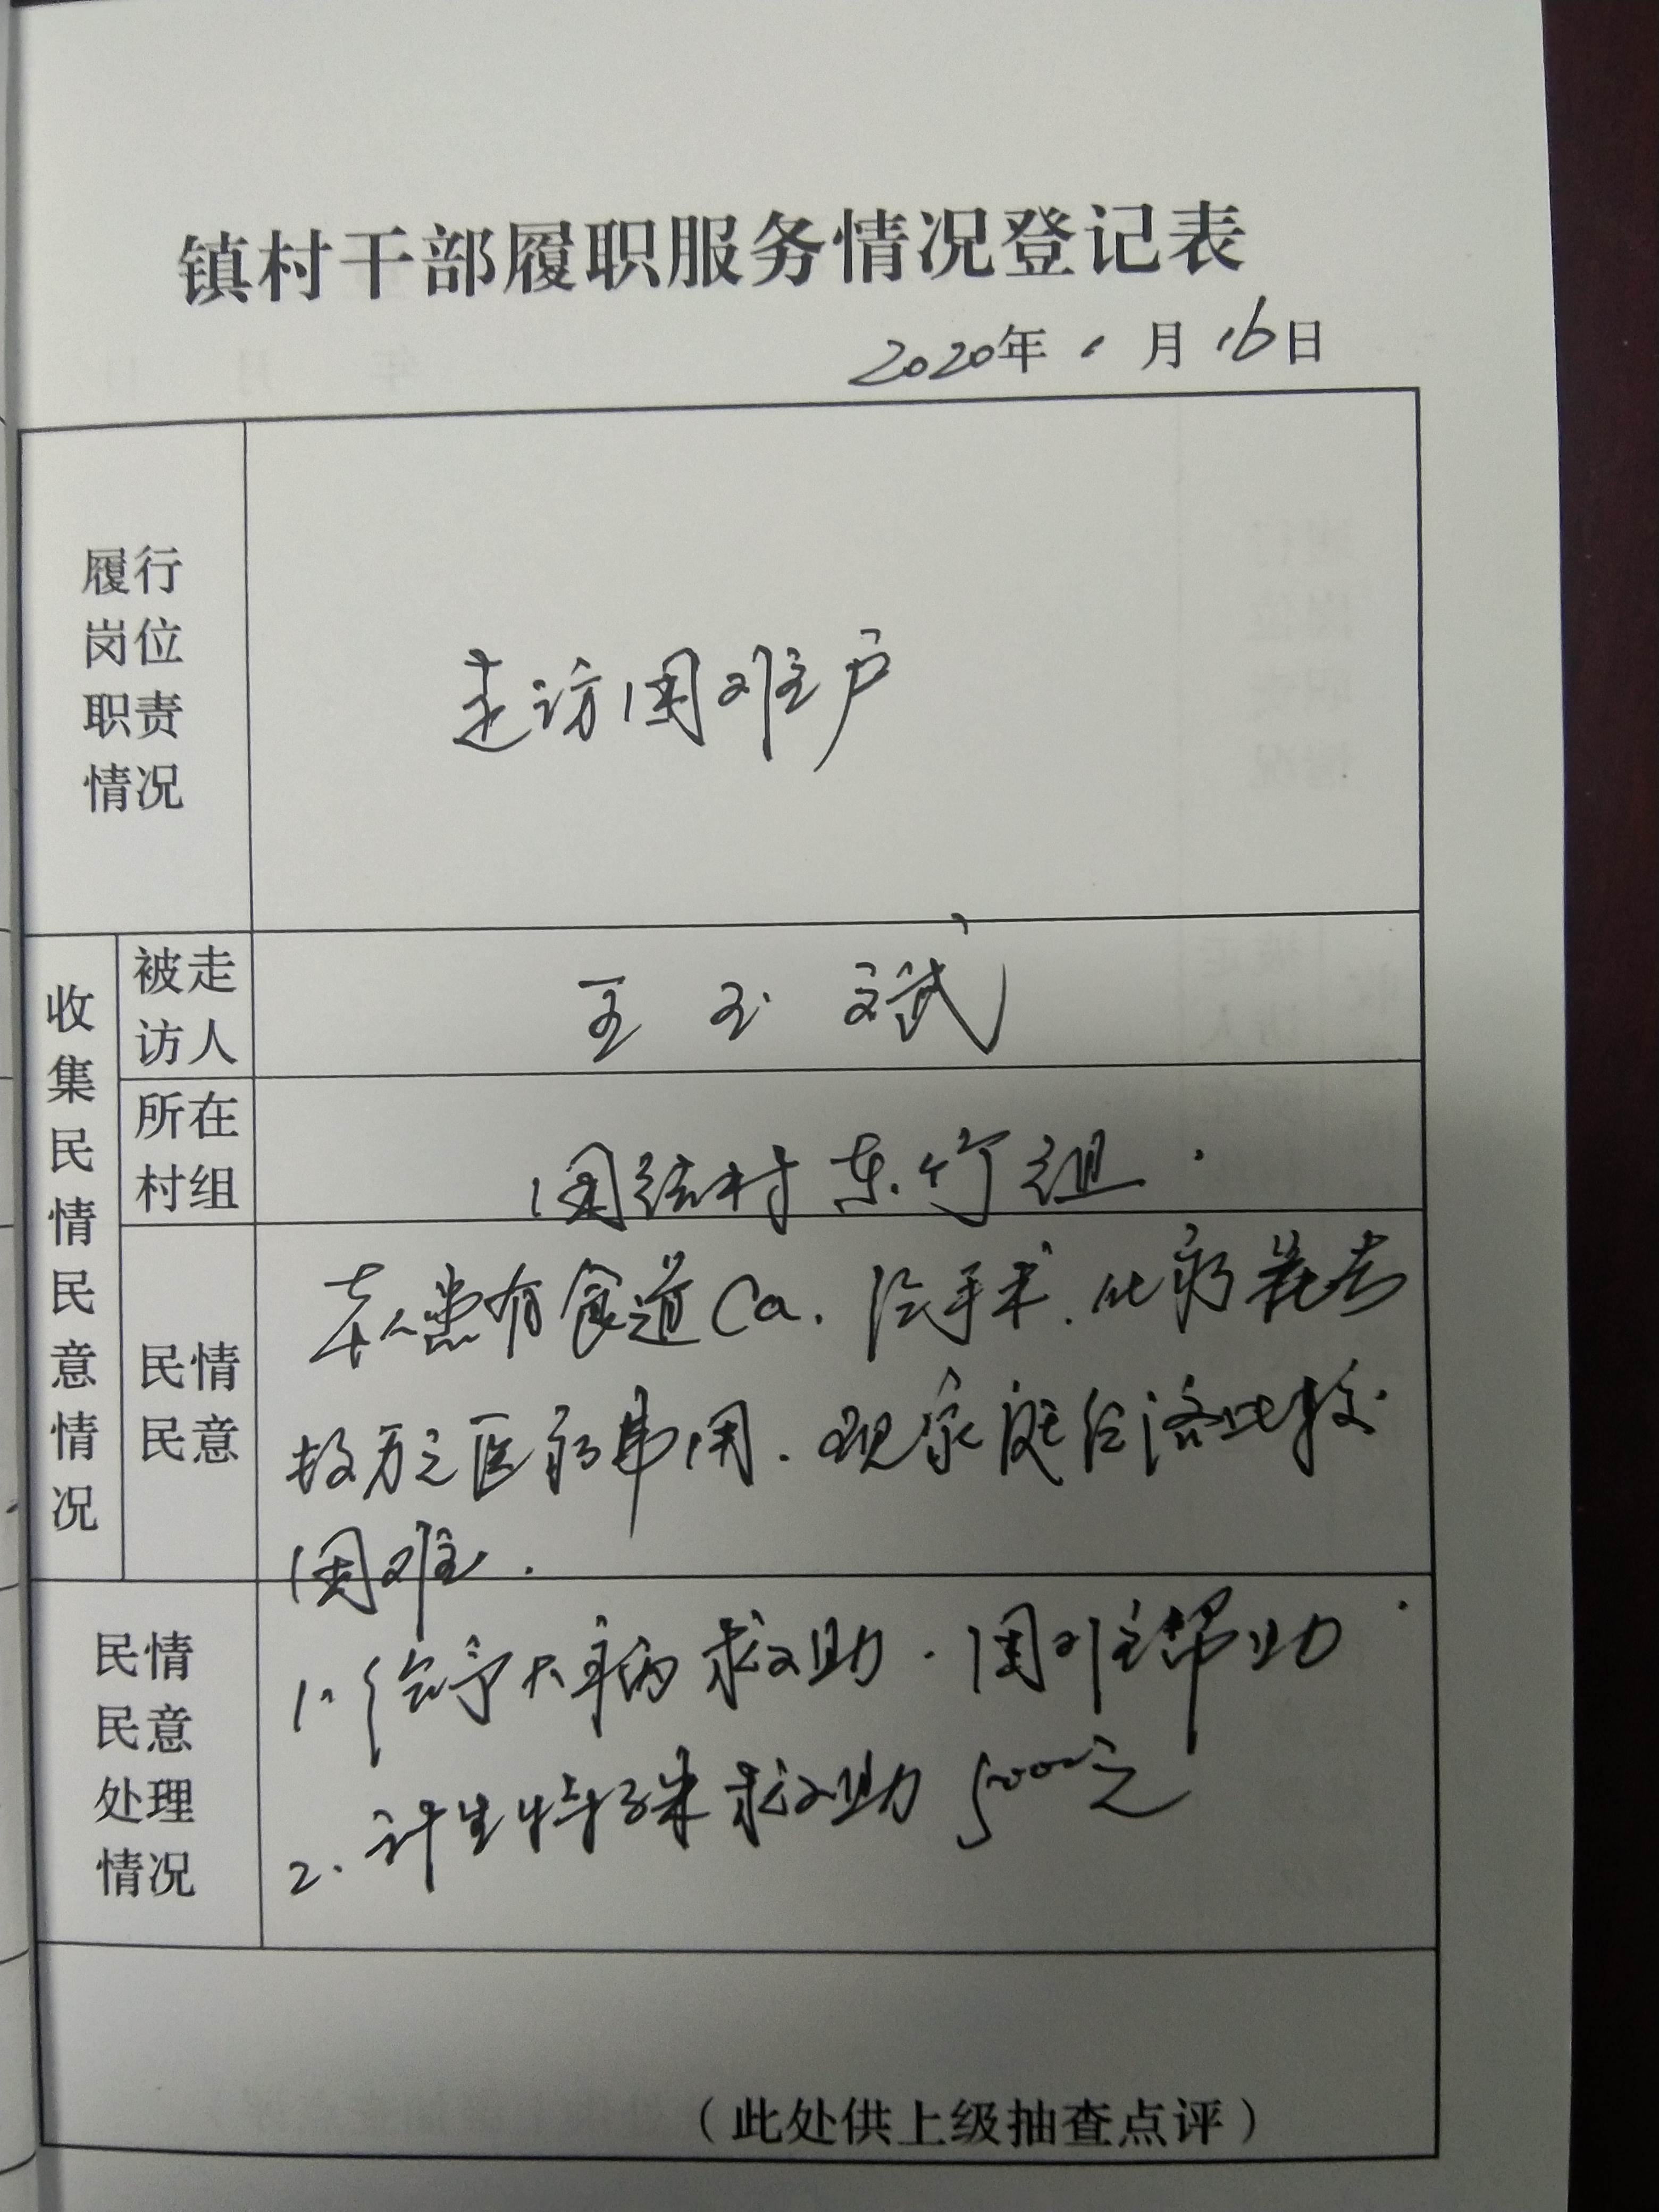 镇村干部履职服务情况登记表
2020年1月16日
履行
岗位
职责
情况
走访困难户
收集民情民意情况
被走
访人
王玉斌
所在
村组
团结村东竹组.
民情
民意
本人患有食道Ca.经手术.化疗花去
数万元医疗费用.现家庭经济比较
困难.
民情
民意
处理
情况
1.给予大病救助.困难帮助
2.计生特殊救助5000元
(此处供上级抽查点评)